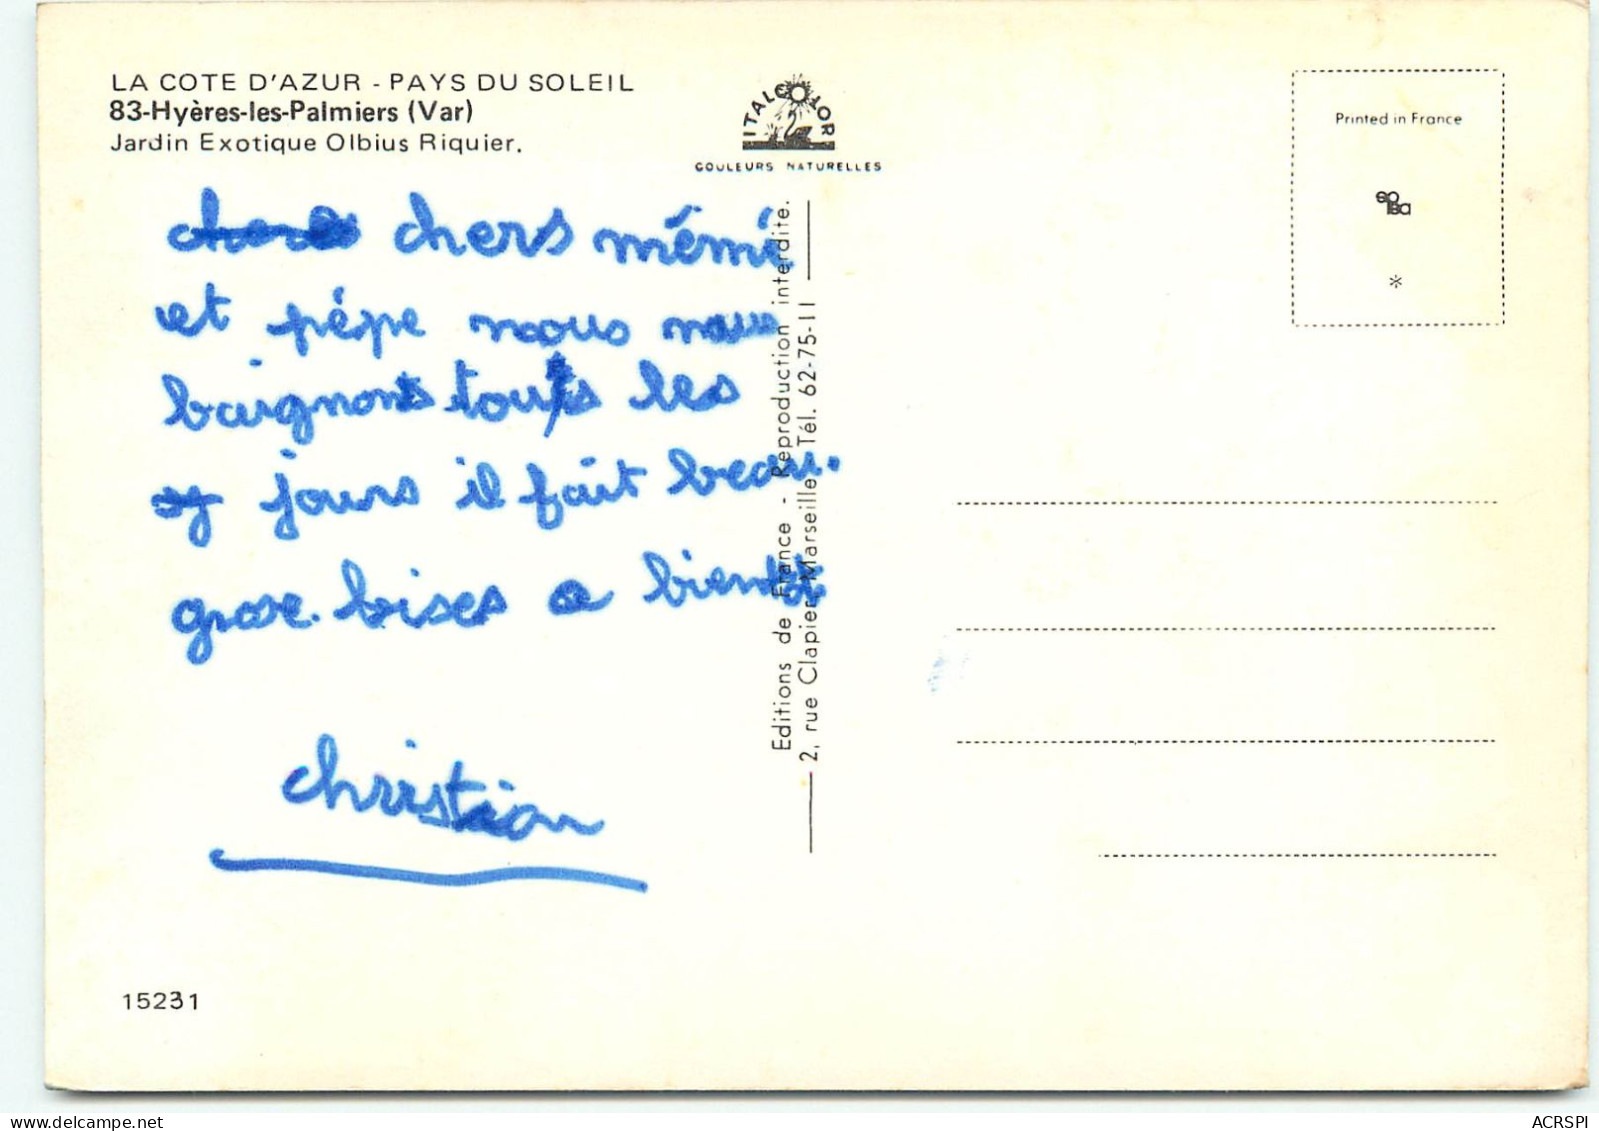 LA COTE D'AZUR - PAYS DU SOLEIL
83-Hyères-les-Palmiers (Var)
Jardin Exotique Olbius Riquier.
ITALCOLOR
COULEURS NATURELLES
Printed in France
*
chers mémé
et pépe nous nous
baignons tous les
jours il fait beau.
grose. bises a bientôt
christian
Editions de France - Reproduction interdite.
2, rue Clapier, Marseille Tél. 62-75-11
15231
ACRSPI